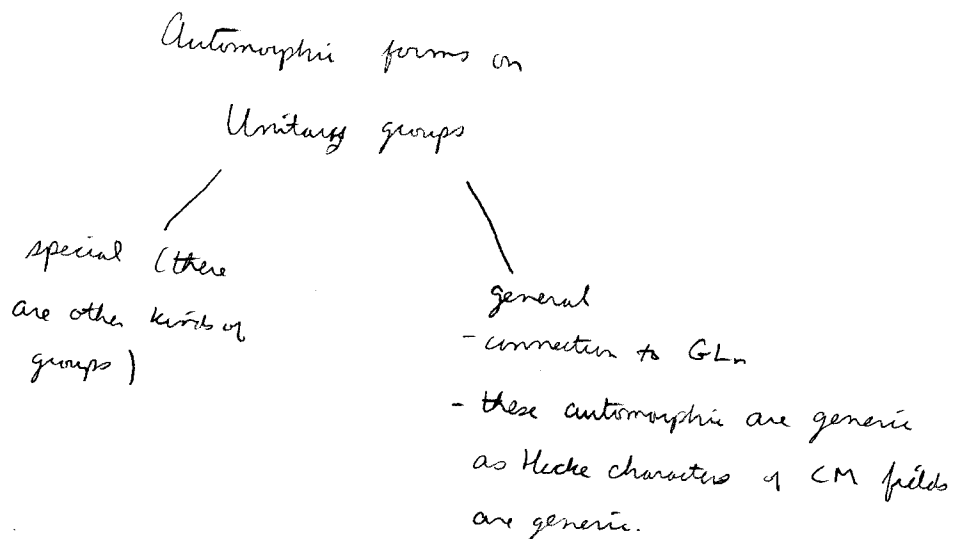 Automorphic forms on
Unitary groups
special (there
are other kinds of
groups)
general
- connection to GLn
- these automorphic are generic
as Hecke characters of CM fields
are generic.